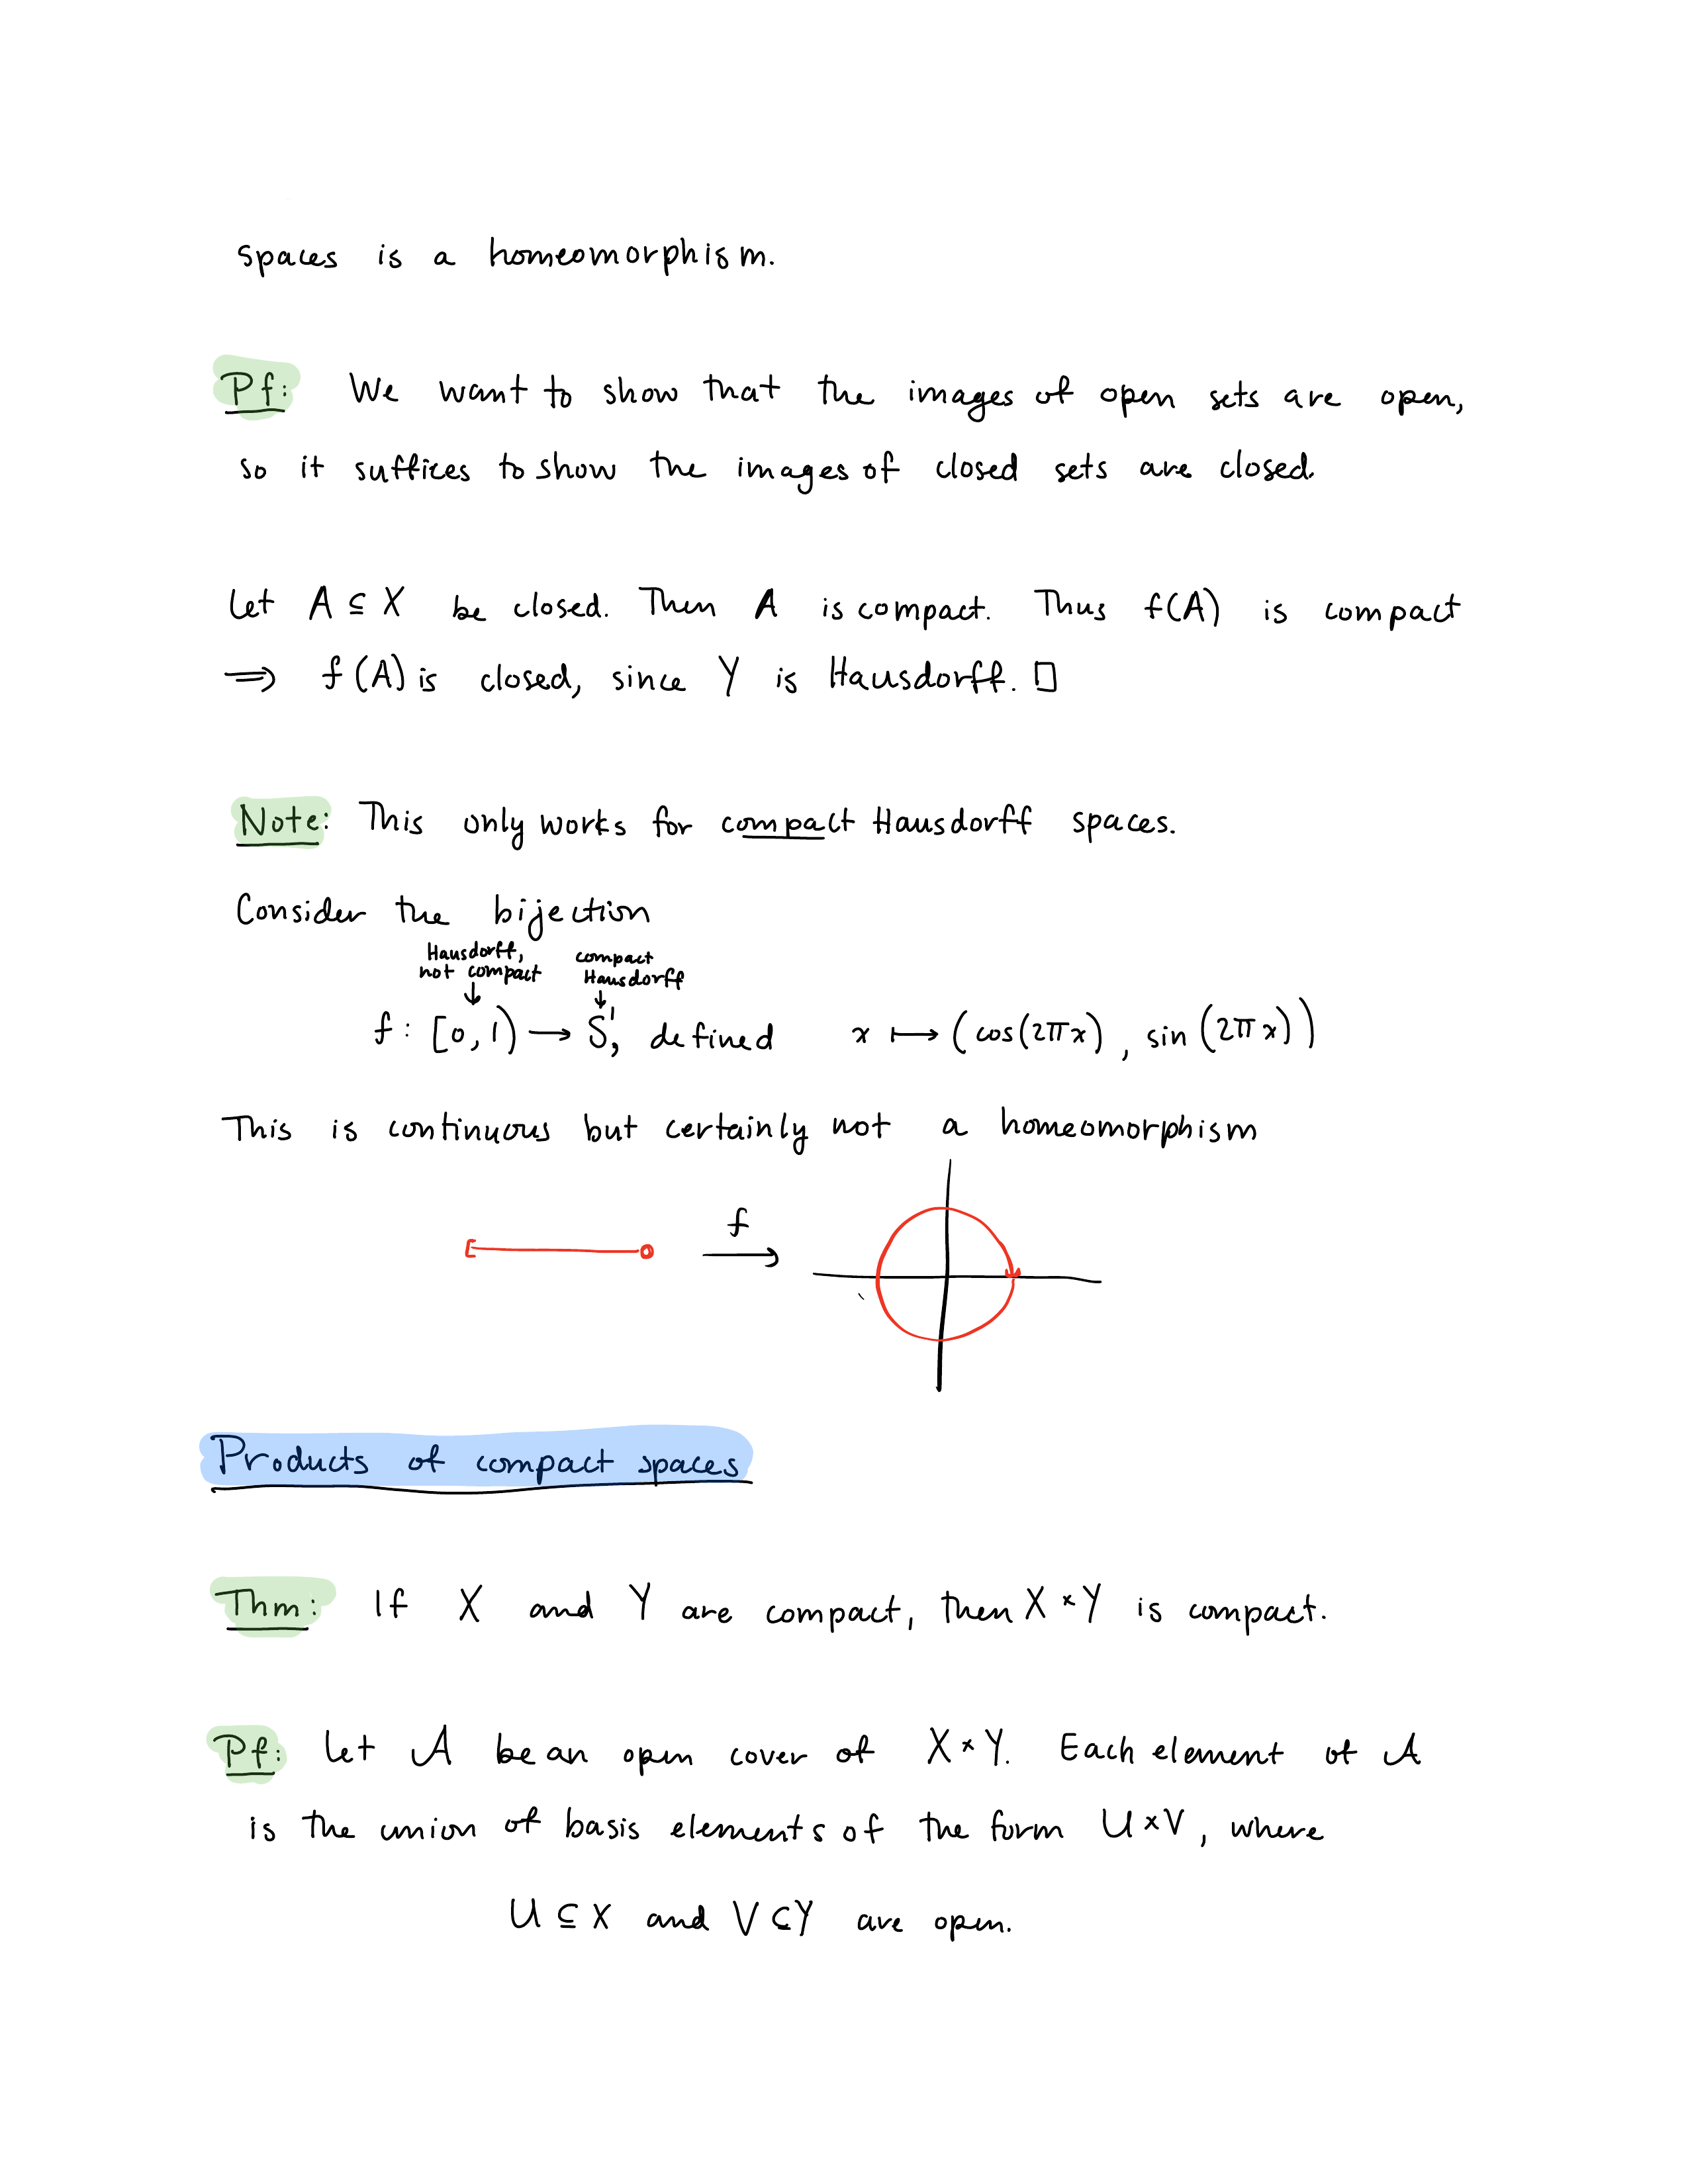 spaces is a homeomorphism.
Pf: We want to show that the images of open sets are open,
so it suffices to show the images of closed sets are closed.
Let A ⊆ X be closed. Then A is compact. Thus f(A) is compact
⟹ f(A) is closed, since Y is Hausdorff. □
Note: This only works for compact Hausdorff spaces.
Consider the bijection
Hausdorff, not compact ↓
compact Hausdorff ↓
f: [0,1) → S¹, defined x ↦ (cos(2πx), sin(2πx))
This is continuous but certainly not a homeomorphism
f
Products of compact spaces
Thm: If X and Y are compact, then X × Y is compact.
Pf: Let 𝒜 be an open cover of X × Y. Each element of 𝒜
is the union of basis elements of the form U × V, where
U ⊆ X and V ⊆ Y are open.